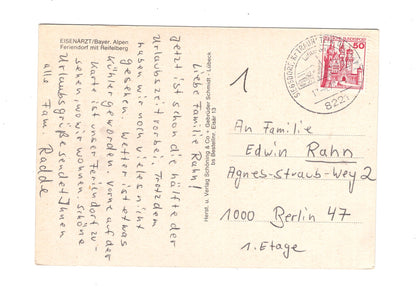 EISENÄRZT/Bayer. Alpen
Feriendorf mit Reifelberg
Liebe Familie Rahn!
Jetzt ist schon die hälfte der
Urlaubszeit vorbei. Trotzdem
haben wir noch vieles nicht
gesehen. Wetter ist etwas
kühler geworden. Vorne auf der
Karte ist unser Feriendorf zu-
sehen, wo wir wohnen. Schöne
Urlaubsgrüße sendet Ihnen
alle Fam. Radde
Herst. u. Verlag Schöning & Co + Gebrüder Schmidt - Lübeck
bs Bestellnr. Eisär 13
1
DEUTSCHE BUNDESPOST
50
SIEGSDORF
822
An Familie
Edwin Rahn
Agnes-Straub-Wey 2
1000 Berlin 47
1. Etage